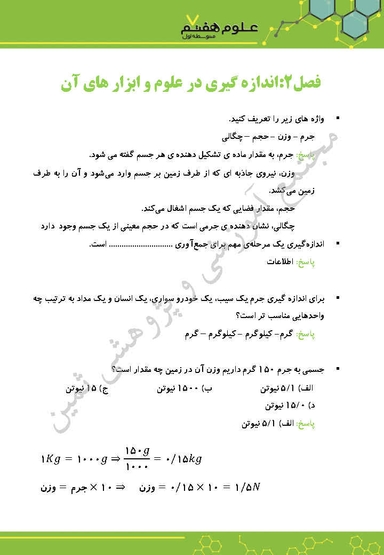 علوم هفتم ۷
متوسطه اول
فصل۲:اندازه گیری در علوم و ابزار های آن
واژه های زیر را تعریف کنید.
جرم – وزن – حجم – چگالی
پاسخ: جرم، به مقدار ماده ی تشکیل دهنده ی هر جسم گفته می شود.
وزن، نیروی جاذبه ای که از طرف زمین بر جسم وارد می‌شود و آن را به طرف
زمین می‌کشد.
حجم، مقدار فضایی که یک جسم اشغال می‌کند.
چگالی، نشان دهنده ی جرمی است که در حجم معینی از یک جسم وجود دارد
اندازه‌گیری یک مرحله‌ی مهم برای جمع‌آوری .............................. است.
پاسخ: اطلاعات
برای اندازه گیری جرم یک سیب، یک خودرو سواری، یک انسان و یک مداد به ترتیب چه
واحدهایی مناسب تر است؟
پاسخ: گرم- کیلوگرم – کیلوگرم – گرم
جسمی به جرم ۱۵۰ گرم داریم وزن آن در زمین چه مقدار است؟
الف) ۵/۱ نیوتن ب) ۱۵۰۰ نیوتن ج) ۱۵ نیوتن
د) ۱۵/۰ نیوتن
پاسخ: الف) ۵/۱ نیوتن
۱Kg = ۱۰۰۰g ⇒ ۱۵۰g/۱۰۰۰ = ۰/۱۵kg
وزن = جرم × ۱۰ ⇒ وزن = ۰/۱۵ × ۱۰ = ۱/۵N
مجتمع آموزشی و پژوهشی ثمین